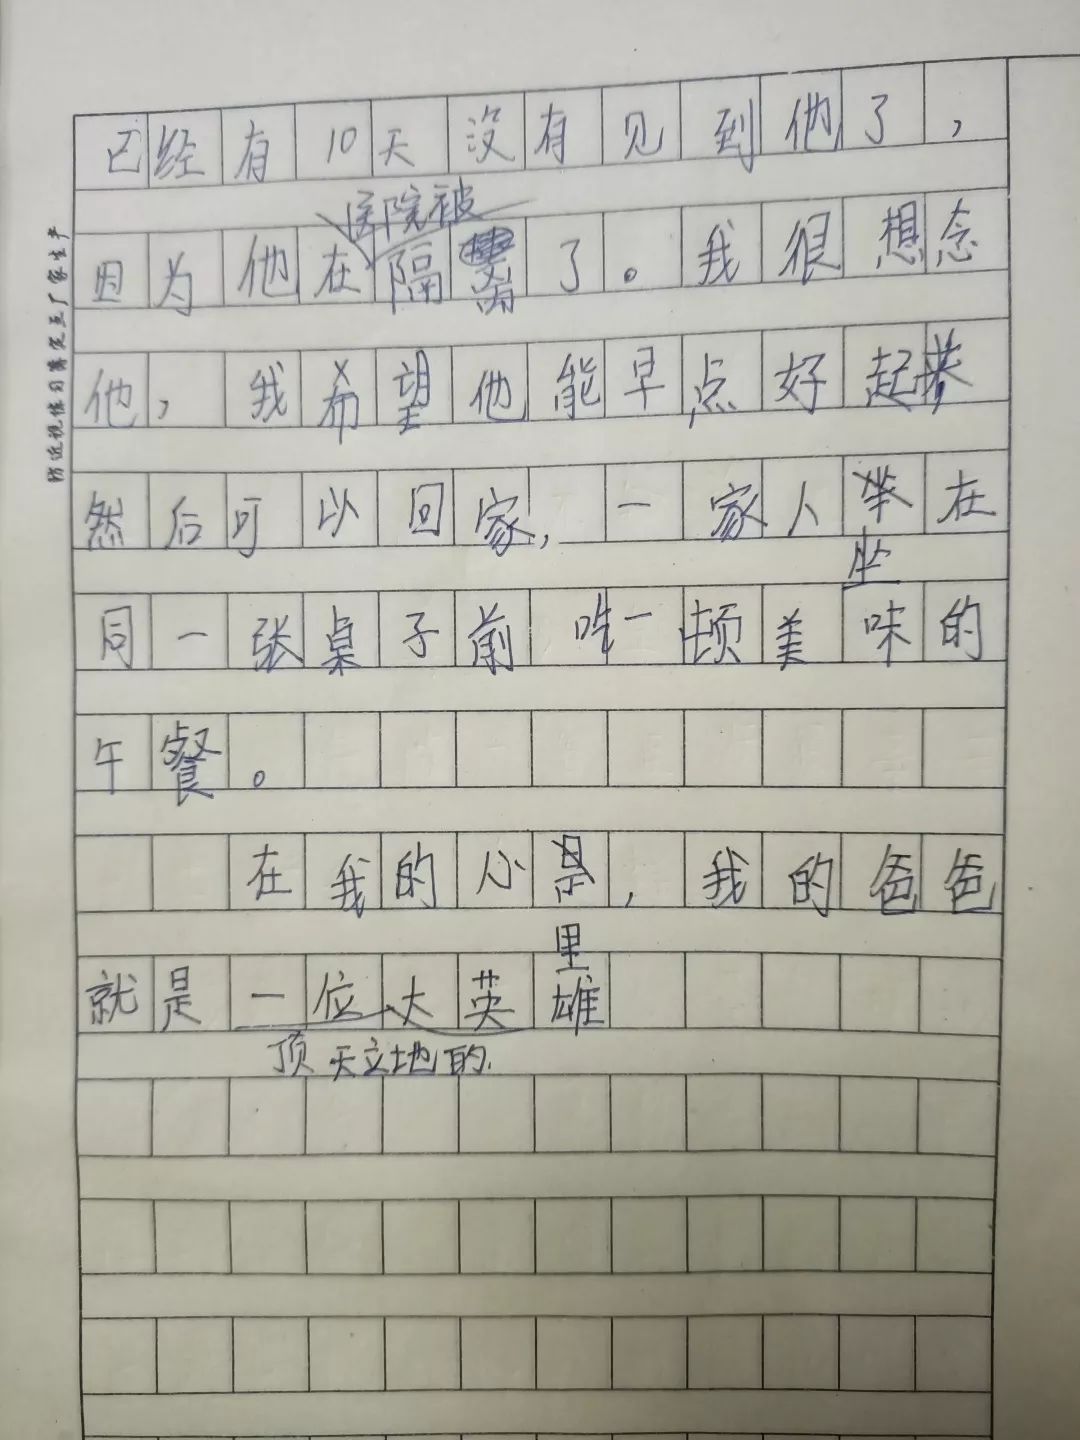 已经有10天没有见到他了，
医院被
因为他在隔离了。我很想念
他，我希望他能早点好起来
然后可以回家，一家人坐在
坐
同一张桌子前吃一顿美味的
午餐。
在我的心里，我的爸爸
里
就是一位大英雄
顶天立地的.
防近视练习簿定点厂家生产